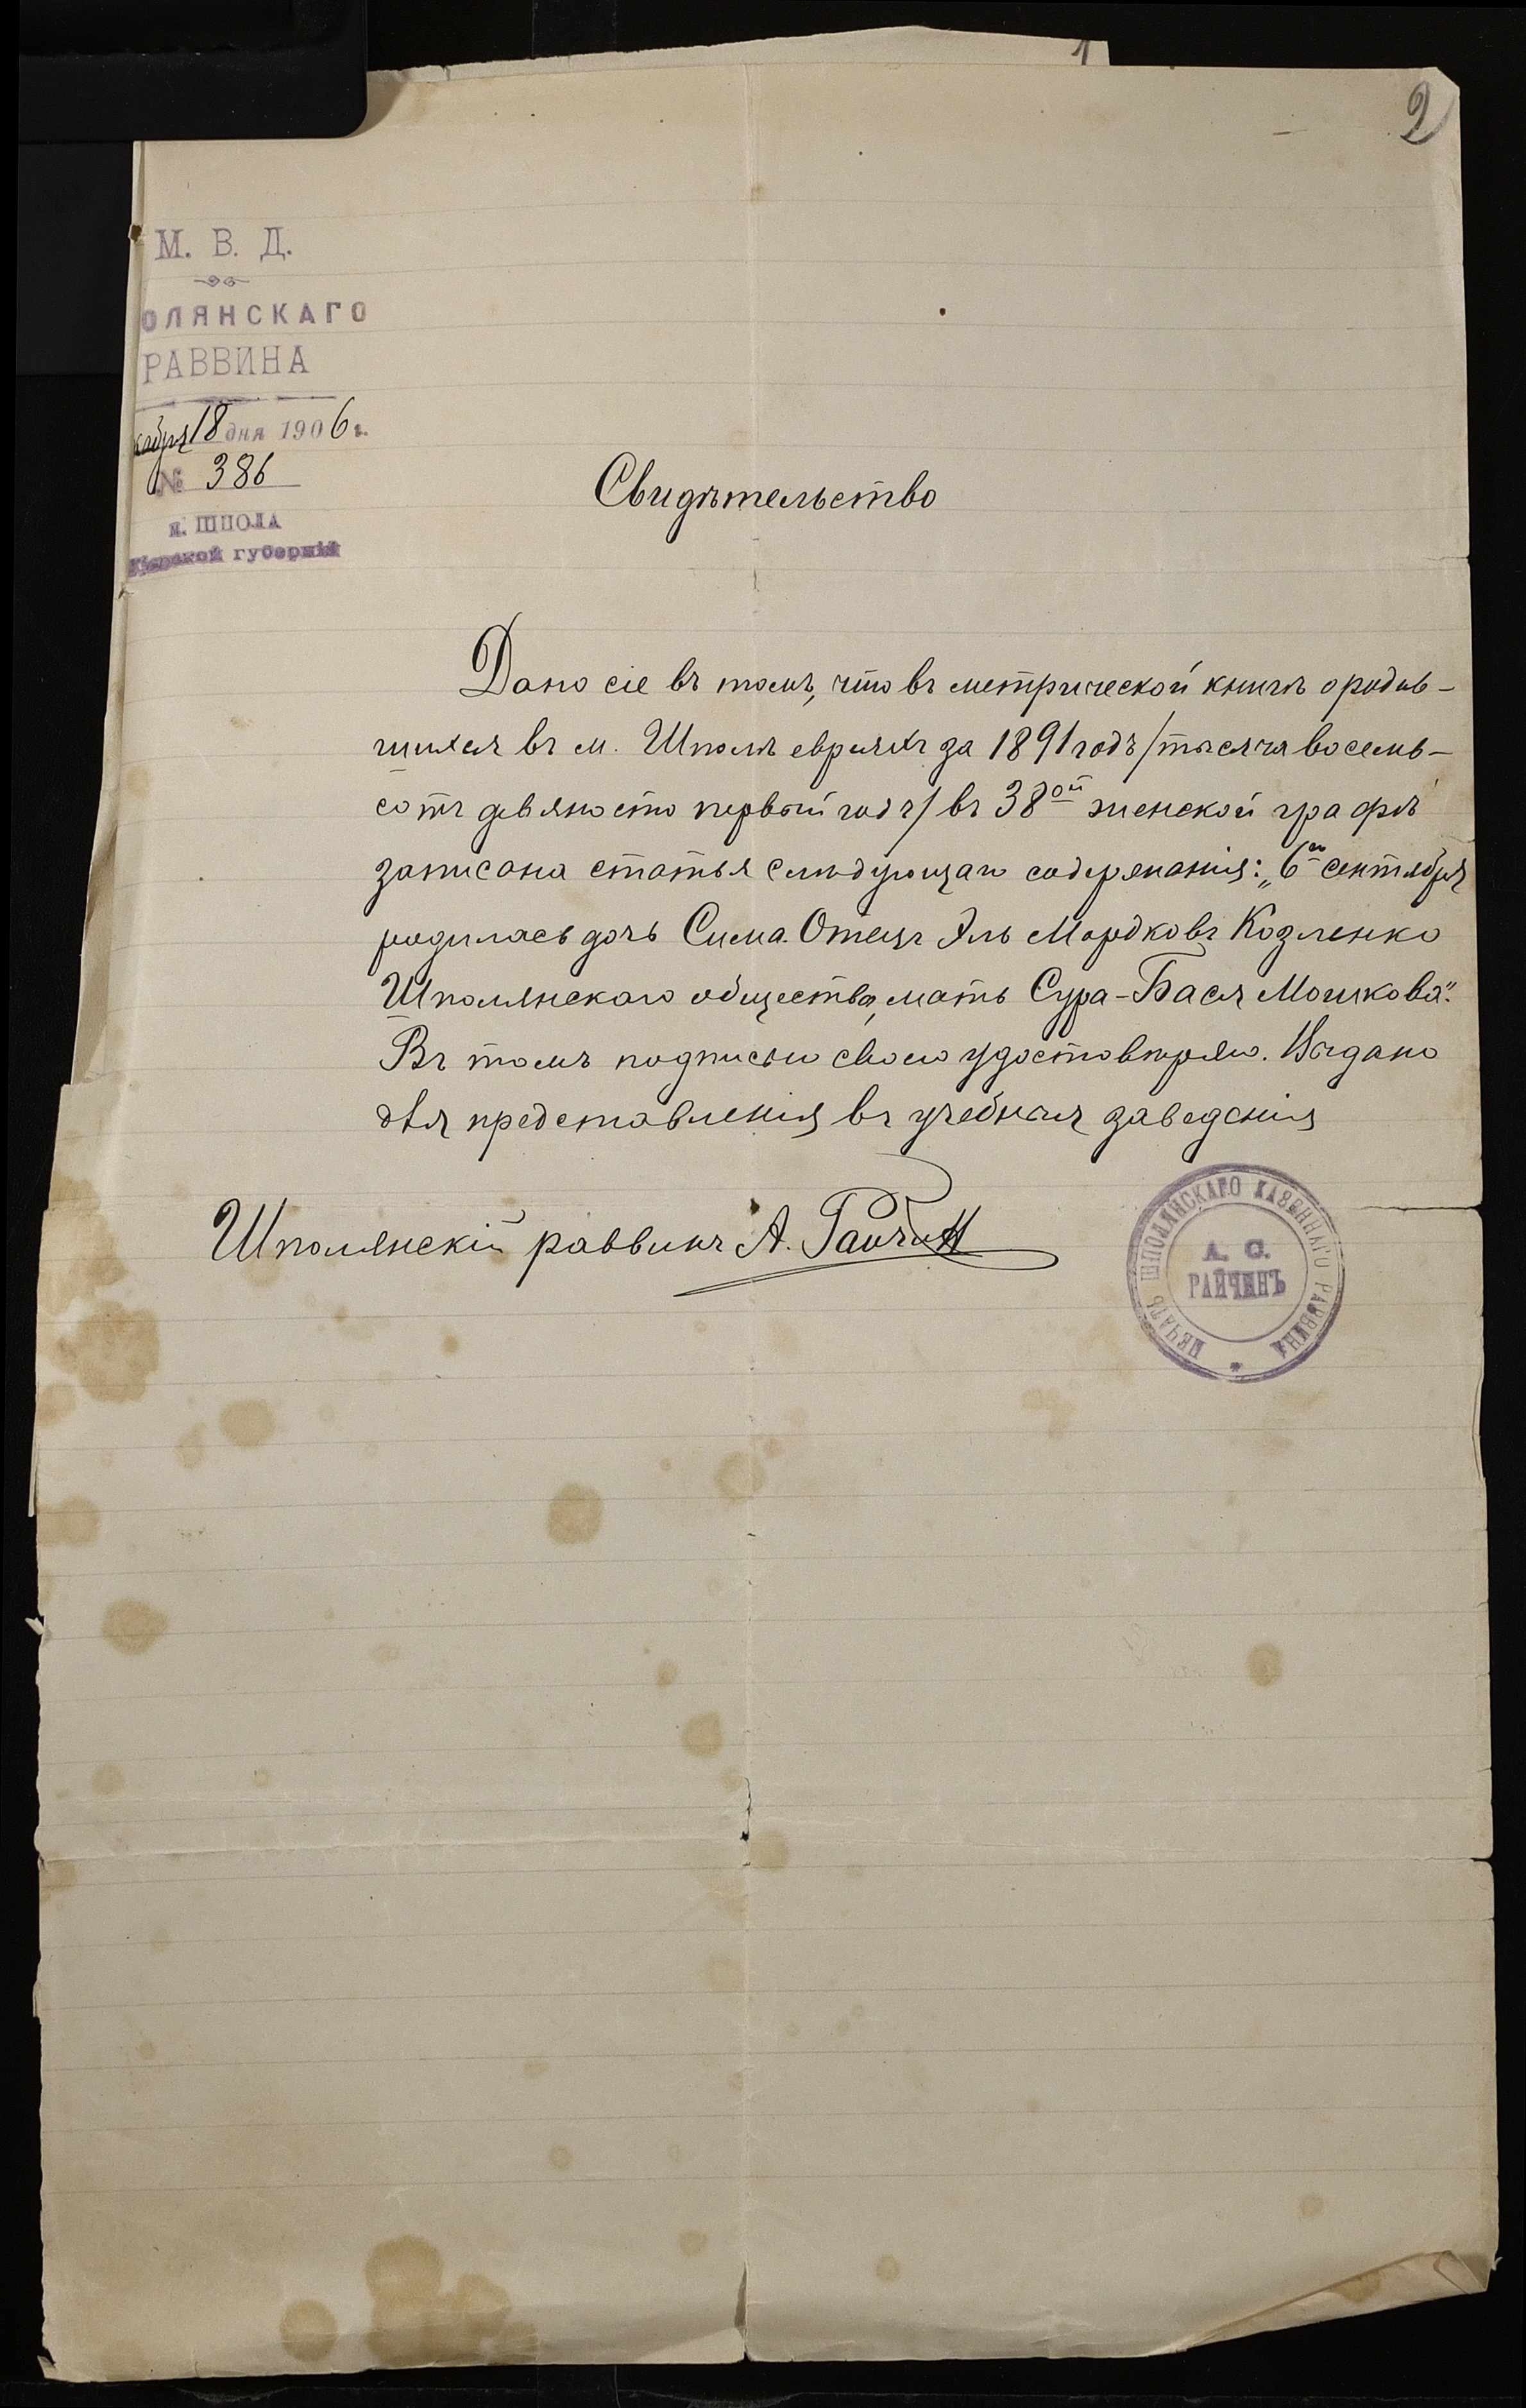 2
М. В. Д.
ОЛЯНСКАГО
РАВВИНА
кабря 18 дня 1906 г.
№ 386
м. ШПОЛА
Кіевской губерніи
Свидѣтельство
Дано сіе въ томъ, что въ метрической книгѣ о родив-
шихся въ м. Шполѣ евреяхъ за 1891 годъ /тысяча восемь-
сотъ девяносто первый годъ/ въ 38ой женской графѣ
записана статья слѣдующаго содержанія: „6го сентября
родилась дочь Сима. Отецъ Эль Мордковъ Козленко
Шполянскаго общества, мать Сура-Бася Мошкова".
Въ томъ подписью своею удостовѣряю. Выдано
для представленія въ учебныя заведенія
Шполянскій раввинъ А. Райчин
ПЕЧАТЬ ШПОЛЯНСКАГО КАЗЕННАГО РАВВИНА
А. С.
РАЙЧИНЪ